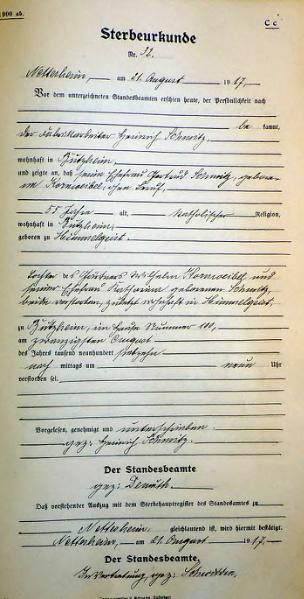 1900 ab.
C c
Sterbeurkunde
Nr. 32.
Netterheim, am 21. August 1917.
Vor dem unterzeichneten Standesbeamten erschien heute, der Persönlichkeit nach
be kannt,
der Fabrikarbeiter Heinrich Schmitz,
wohnhaft in
und zeigte an, daß seine Ehefrau Gertrud Schmitz, gebore-
ne ohne Beruf,
55 Jahre alt, katholischer Religion,
wohnhaft in
geboren zu Himmelgeist,
Tochter des Wilhelm und
seiner Ehefrau Katharina geborenen Schmitz,
beide verstorben, zuletzt wohnhaft in Himmelgeist,
zu im Hause Nummer
am zwanzigsten August
des Jahres tausend neunhundert siebzehn
nach mittags um neun Uhr
verstorben sei.
Vorgelesen, genehmigt und unterschrieben
gez: Heinrich Schmitz.
Der Standesbeamte
gez:
Daß vorstehender Auszug mit dem Sterbehauptregister des Standesamtes zu
Netterheim gleichlautend ist, wird hiermit bestätigt.
Netterheim, am 21. August 1917.
Der Standesbeamte,
In Vertretung, gez: